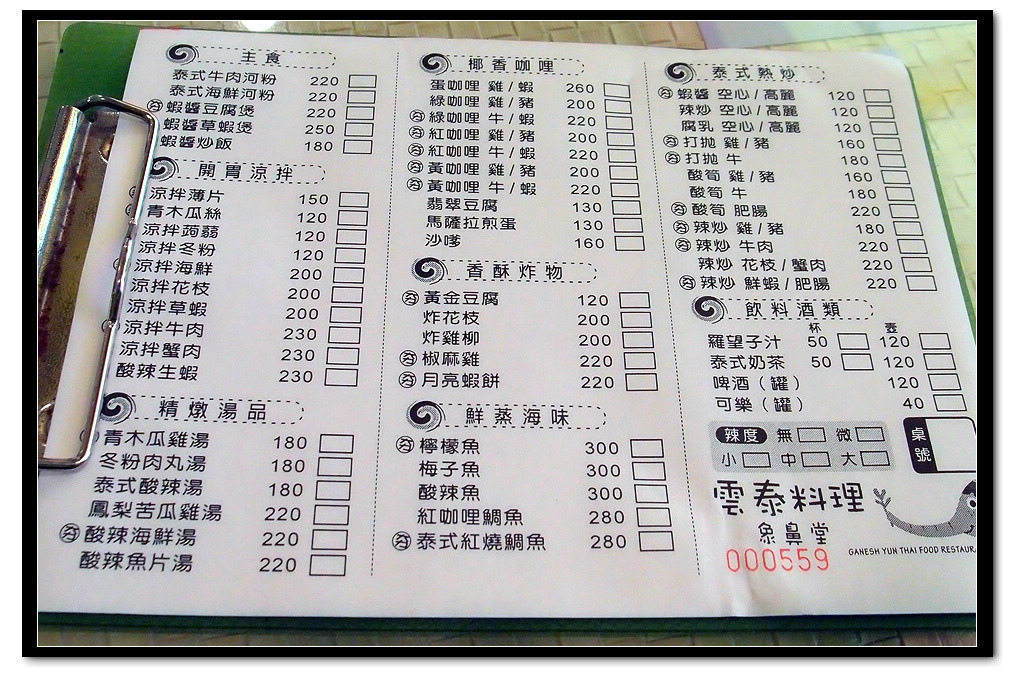 主食
泰式牛肉河粉 220
泰式海鮮河粉 220
蝦醬豆腐煲 220
蝦醬草蝦煲 250
蝦醬炒飯 180
開胃涼拌
涼拌薄片 150
青木瓜絲 120
涼拌蒟蒻 120
涼拌冬粉 120
涼拌海鮮 200
涼拌花枝 200
涼拌草蝦 200
涼拌牛肉 230
涼拌蟹肉 230
酸辣生蝦 230
精燉湯品
青木瓜雞湯 180
冬粉肉丸湯 180
泰式酸辣湯 180
鳳梨苦瓜雞湯 220
酸辣海鮮湯 220
酸辣魚片湯 220
椰香咖哩
蛋咖哩 雞/蝦 260
綠咖哩 雞/豬 200
綠咖哩 牛/蝦 220
紅咖哩 雞/豬 200
紅咖哩 牛/蝦 220
黃咖哩 雞/豬 200
黃咖哩 牛/蝦 220
翡翠豆腐 130
馬薩拉煎蛋 130
沙嗲 160
香酥炸物
黃金豆腐 120
炸花枝 200
炸雞柳 200
椒麻雞 220
月亮蝦餅 220
鮮蒸海味
檸檬魚 300
梅子魚 300
酸辣魚 300
紅咖哩鯛魚 280
泰式紅燒鯛魚 280
泰式熱炒
蝦醬 空心/高麗 120
辣炒 空心/高麗 120
腐乳 空心/高麗 120
打拋 雞/豬 160
打拋 牛 180
酸筍 雞/豬 160
酸筍 牛 180
酸筍 肥腸 220
辣炒 雞/豬 180
辣炒 牛肉 220
辣炒 花枝/蟹肉 220
辣炒 鮮蝦/肥腸 220
飲料酒類
杯 壺
羅望子汁 50 120
泰式奶茶 50 120
啤酒(罐) 120
可樂(罐) 40
辣度 無 微
小 中 大
桌號
雲泰料理
象鼻堂
GANESH YUN THAI FOOD
000559